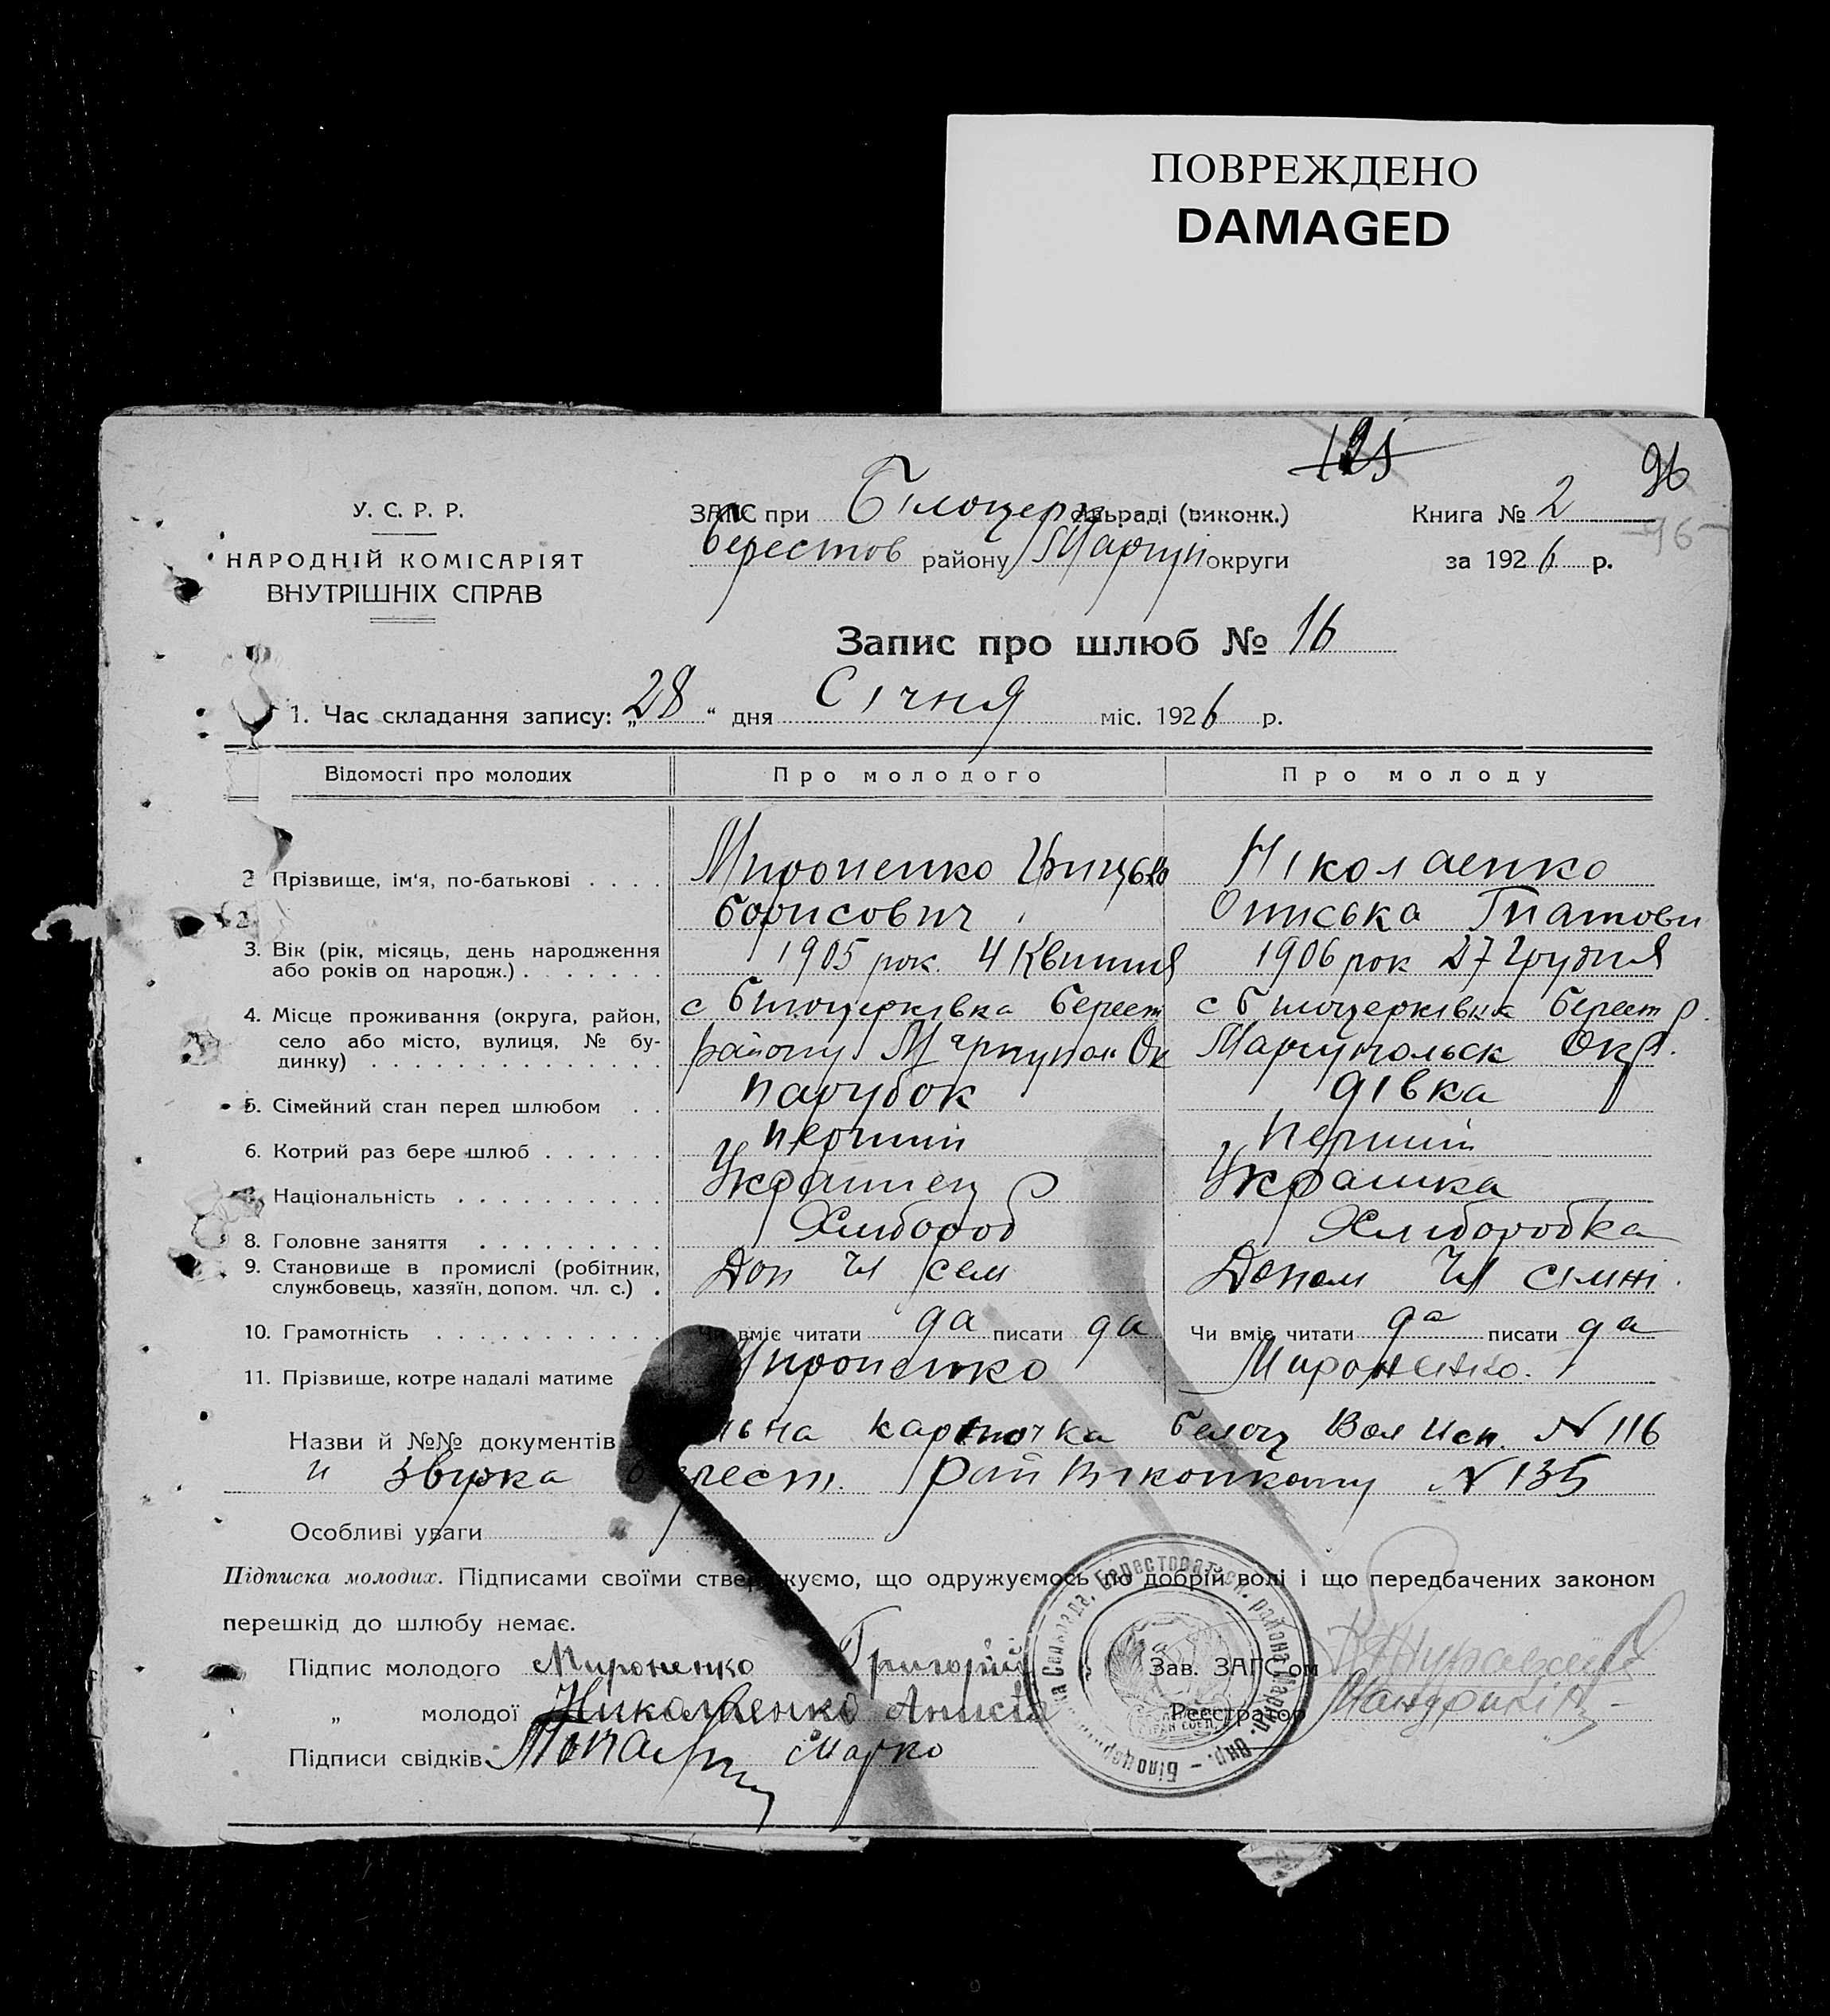 ПОВРЕЖДЕНО
DAMAGED
125
96
У. С. Р. Р.
НАРОДНІЙ КОМІСАРІЯТ
ВНУТРІШНІХ СПРАВ
ЗАГС при Білоцерк сільраді (виконк.)
Берестов району Маріуп округи
Книга № 2
96
за 1926 р.
Запис про шлюб № 16
1. Час складання запису: „28“ дня Січня міс. 1926 р.
Відомості про молодих Про молодого Про молоду
2 Прізвище, ім‘я, по-батькові . . . . Мироненко Грицько Ніколаенко
Борисович Ониська Гнатовн
3. Вік (рік, місяць, день народження або років од народж.) . . . . . . . 1905 рок. 4 Квитня 1906 рок 27 Грудня
4. Місце проживання (округа, район, с Билоцерківка Берест с Билоцерківка Берест р.
село або місто, вулиця, № бу-
динку) . . . . . . . . . . . . . . району Маріупол Ок Мариупольск Окр.
5. Сімейний стан перед шлюбом . . парубок дівка
6. Котрий раз бере шлюб . . . . . . перший перший
7. Національність . . . . . . . . . . Украинец Украинка
8. Головне заняття . . . . . . . . . Хлибороб Хлиборобка
9. Становище в промислі (робітник, службовець, хазяїн, допом. чл. с.) . Доп Чл сем Допом Чл сімні.
10. Грамотність . . . . . . . . . . . Чи вміє читати да писати да Чи вміє читати да писати да
11. Прізвище, котре надалі матиме Мироненко Мироненко.
Назви й №№ документів льна карточка Белоц Вол Исп. № 116
и Звирка Берест. Рай Виконкому № 135
Особливі уваги
Підписка молодих. Підписами своїми стверджуємо, що одружуємось по добрій волі і що передбачених законом
перешкід до шлюбу немає.
Підпис молодого Мироненко Григорий
Зав. ЗАГС‘ом
„ молодої Николаенко Аниста
Реєстратор
Підписи свідків Марко
Сільрада, Берестоват-ськ. района Маріюп. Окр. – Білоцер